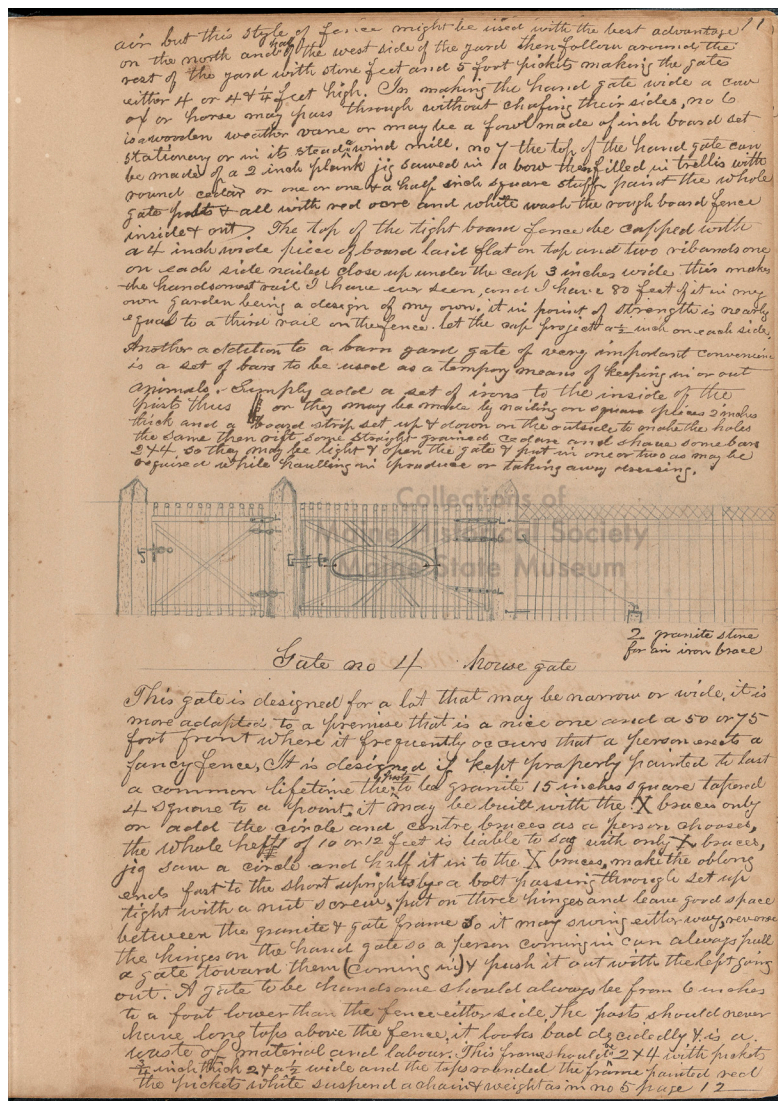 11
air but this style of fence might be used with the best advantage
on the north and half the west side of the yard then follow around the
rest of the yard with stone feet and 5 foot pickets making the gate
either 4 or 4 & ¼ feet high. In making the hand gate wide a cow
ox or horse may pass through without chafing their sides, no 6
is a wooden weather vane or may be a fowl made of inch board set
stationary or in its stead a wind mill. no 7 the top of the hand gate can
be made of a 2 inch plank jig sawed in a bow then filled in trellis with
round cedar or one or one & a half inch square stuff paint the whole
gate posts & all with red ocre and white wash the rough board fence
inside & out The top of the tight board fence be capped with
a 4 inch wide piece of board laid flat on top and two ribands one
on each side nailed close up under the cap 3 inches wide this makes
the handsomest rail I have ever seen, and I have 80 feet of it in my
own garden being a design of my own. it in point of strength is nearly
equal to a third rail on the fence. let the cap project a ½ inch on each side.
Another addition to a barn yard gate of very important convenience
is a set of bars to be used as a tempory means of keeping in or out
animals. Simply add a set of irons to the inside of the
posts thus or they may be made by nailing on square pieces 2 inches
thick and a board strip set up & down on the outside to make the holes
the same then rift some straight grained cedar and shave some bars
2 x 4. so they may be light & open the gate & put in one or two as may be
required while haulting in produce or taking away dressing.
Collections of
Maine Historical Society
Maine State Museum
2 granite stone
for an iron brace
Gate no 4 House gate
This gate is designed for a lot that may be narrow or wide. it is
more adapted to a premise that is a nice one and a 50 or 75
foot front where it frequently occurs that a person erects a
fancy fence, It is designed if kept properly painted to last
a common lifetime the posts to be granite 15 inches square taperd
4 square to a point, it may be built with the X braces only
or add the circle and centre braces as a person chooses,
the whole heft of 10 or 12 feet is liable to sag with only X braces,
jig saw a circle and half it in to the X braces, make the oblong
ends fast to the short uprights by a bolt passing through set up
tight with a nut screw, put on three hinges and leave good space
between the granite & gate frame so it may swing either way, reverse
the hinges on the hand gate so a person coming in can always pull
a gate toward them (coming in) & push it out with the left going
out. A gate to be handsome should always be from 6 inches
to a foot lower than the fence either side, The posts should never
have long tops above the fence, it looks bad decidedly & is a
waste of material and labour. This frame should be 2 x 4 with pickets
¾ inch thick 2 & a ½ wide and the tops rounded the frame painted red
the pickets white suspend a chain & weight as in no 5 page 12